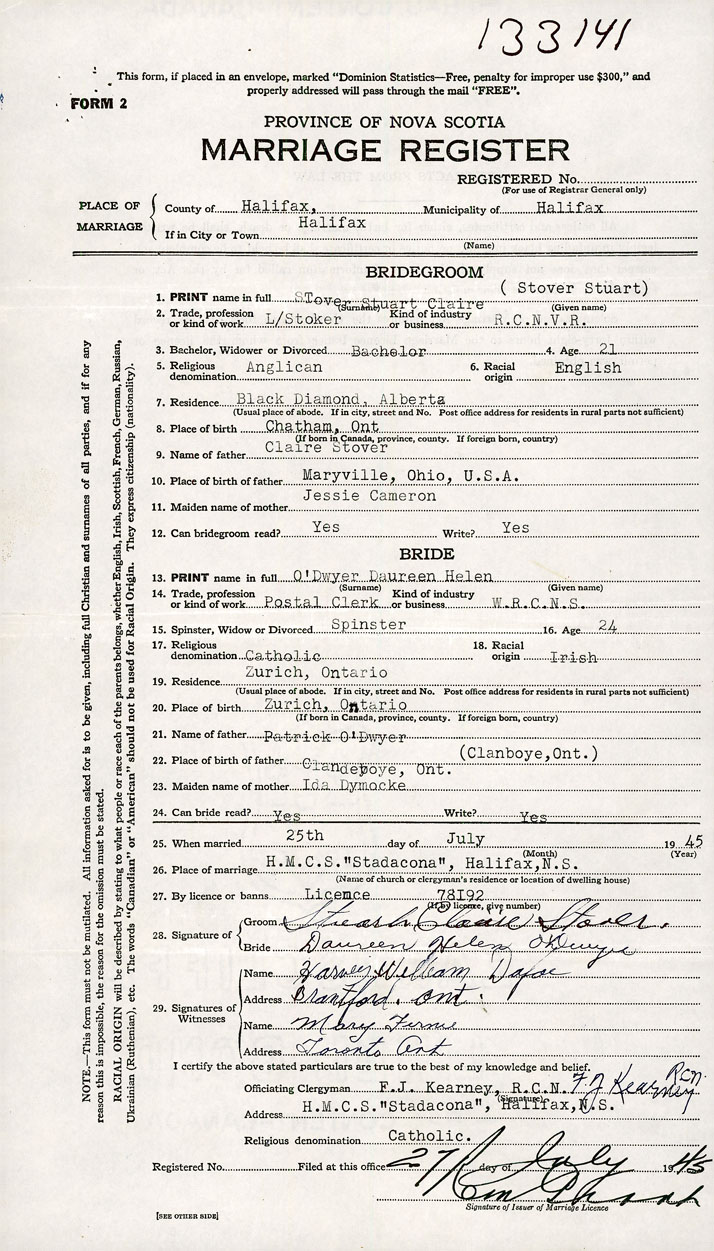 133141
This form, if placed in an envelope, marked "Dominion Statistics—Free, penalty for improper use $300," and
properly addressed will pass through the mail "FREE".
FORM 2
PROVINCE OF NOVA SCOTIA
MARRIAGE REGISTER
REGISTERED No.
(For use of Registrar General only)
PLACE OF MARRIAGE
County of Halifax, Municipality of Halifax
If in City or Town Halifax
(Name)
BRIDEGROOM
( Stover Stuart)
1. PRINT name in full STover Stuart Claire
(Surname) (Given name)
2. Trade, profession or kind of work L/Stoker Kind of industry or business R.C.N.V.R.
3. Bachelor, Widower or Divorced Bachelor 4. Age 21
5. Religious denomination Anglican 6. Racial origin English
7. Residence Black Diamond, Alberta
(Usual place of abode. If in city, street and No. Post office address for residents in rural parts not sufficient)
8. Place of birth Chatham, Ont
(If born in Canada, province, county. If foreign born, country)
9. Name of father Claire Stover
10. Place of birth of father Maryville, Ohio, U.S.A.
11. Maiden name of mother Jessie Cameron
12. Can bridegroom read? Yes Write? Yes
BRIDE
13. PRINT name in full O'Dwyer Daureen Helen
(Surname) (Given name)
14. Trade, profession or kind of work Postal Clerk Kind of industry or business W.R.C.N.S.
15. Spinster, Widow or Divorced Spinster 16. Age 24
17. Religious denomination Catholic 18. Racial origin Irish
19. Residence Zurich, Ontario
(Usual place of abode. If in city, street and No. Post office address for residents in rural parts not sufficient)
20. Place of birth Zurich, Ontario
(If born in Canada, province, county. If foreign born, country)
21. Name of father Patrick O'Dwyer
22. Place of birth of father Clandeboye, Ont. (Clanboye,Ont.)
23. Maiden name of mother Ida Dymocke
24. Can bride read? Yes Write? Yes
25. When married 25th day of July 1945
(Month) (Year)
26. Place of marriage H.M.C.S."Stadacona", Halifax,N.S.
(Name of church or clergyman's residence or location of dwelling house)
27. By licence or banns Licence 78I92
(If by licence, give number)
28. Signature of
Groom Stuart Claire Stover.
Bride Daureen Helen O'Dwyer
29. Signatures of Witnesses
Name Harvey William Dafoe
Address Brantford. Ont.
Name Mary
Address Toronto Ont
I certify the above stated particulars are true to the best of my knowledge and belief.
Officiating Clergyman F.J. Kearney, R.C.N. F J Kearney RCN
(Signature)
Address H.M.C.S."Stadacona", Halifax,N.S.
Religious denomination Catholic.
Registered No. Filed at this office 27 day of July 1945
Signature of Issuer of Marriage Licence
[SEE OTHER SIDE]
NOTE.—This form must not be mutilated. All information asked for is to be given, including full Christian and surnames of all parties, and if for any
reason this is impossible, the reason for the omission must be stated.
RACIAL ORIGIN will be described by stating to what people or race each of the parents belongs, whether English, Irish, Scottish, French, German, Russian,
Ukrainian (Ruthenian), etc. The words "Canadian" or "American" should not be used for Racial Origin. They express citizenship (nationality).